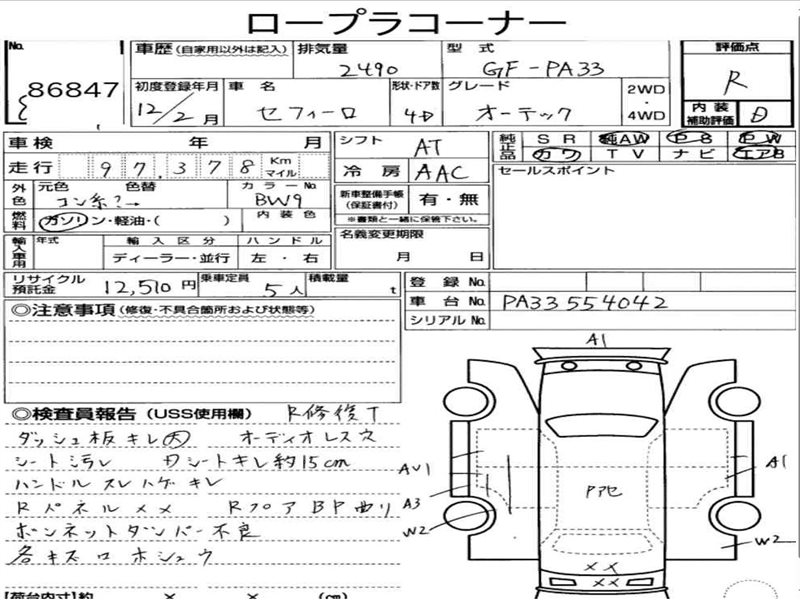 ロープラコーナー
No.
86847
車歴 (自家用以外は記入)
排気量
2490
型式
GF-PA33
評価点
R
初度登録年月
12/2月
車名
セフィーロ
形状・ドア数
4D
グレード
オーテック
2WD
・
4WD
内装
補助評価
D
車検 年 月
シフト
AT
純正品
SR 純AW PS PW
カワ TV ナビ エアB
走行 97,378 Km
マイル
冷房
AAC
セールスポイント
外色
元色 色替
コン系?→
カラーNo.
BW9
新車整備手帳
(保証書付)
有・無
※書類と一緒に保管下さい。
燃料
ガソリン・軽油・( )
内装色
名義変更期限
月 日
輸入車用
年式
輸入区分
ディーラー・並行
ハンドル
左・右
リサイクル
預託金
12,510円
乗車定員
5人
積載量
t
登録No.
車台No.
PA33 554042
シリアルNo.
◎注意事項(修復・不具合箇所および状態等)
◎検査員報告 (USS使用欄) R修復T
ダッシュ板キレ 大 オーディオレス穴
シート汚レ Dシートキレ約15cm
ハンドルスレハゲキレ
Rパネルメメ RフロアBP曲り
ボンネットダンパー不良
各キズロホシュウ
A1
AU1
A3
W2
Pアセ
A1
W2
××
××
【荷台内寸】約 × × (cm)